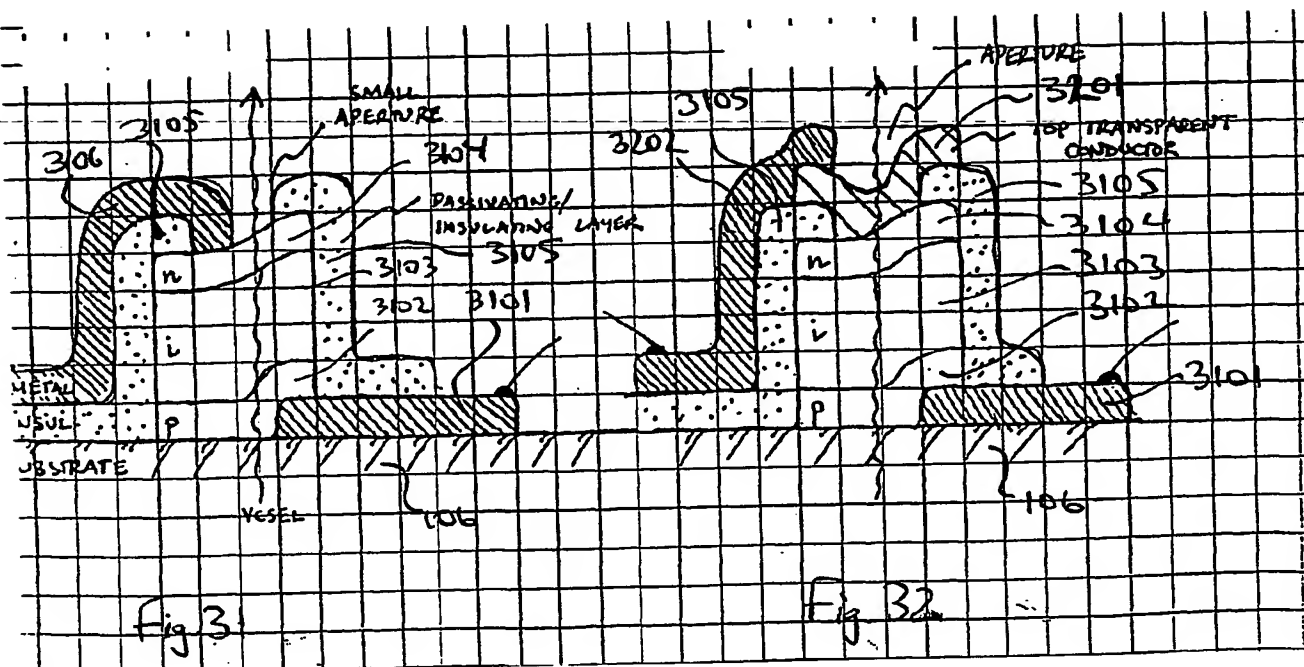 SMALL
APERTURE
3105
3106
3104
PASSIVATING/
INSULATING LAYER
3105
3103
3102
3101
n
i
p
METAL
NSUL
UBSTRATE
VESEL
106
Fig 3
APERTURE
3105
3201
3202
TOP TRANSPARENT
CONDUCTOR
3105
3104
n
3103
3102
i
3101
p
106
Fig 32